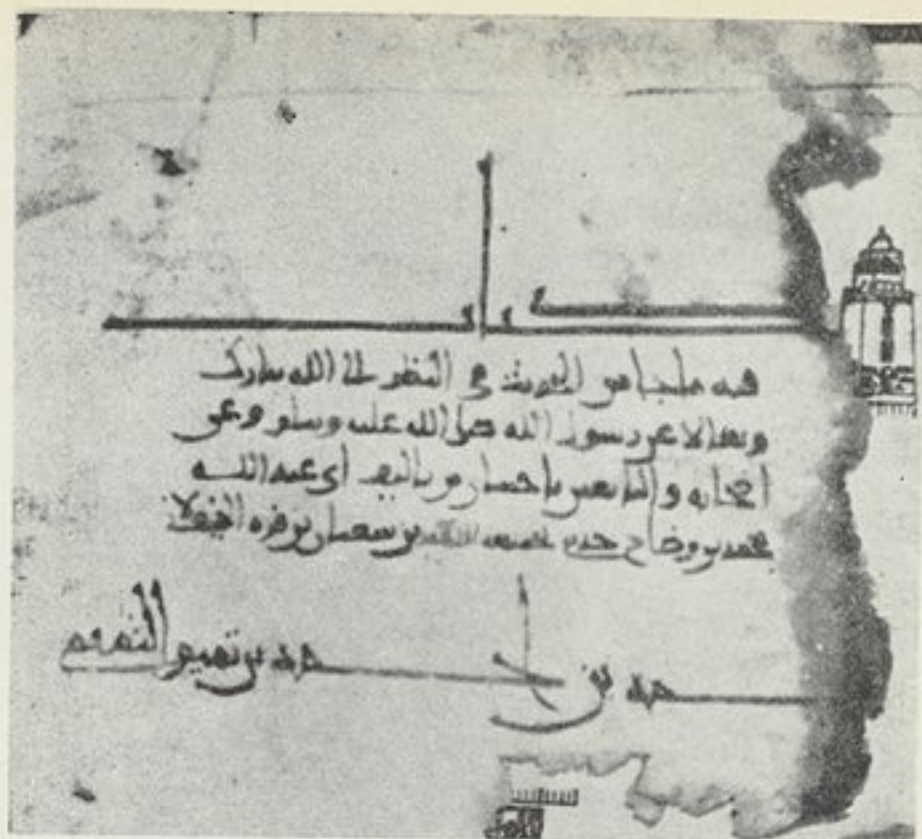 كتاب
فيه ما جا من الحديث في النظر الى الله تبارك
وتعالا عن رسول الله صلى الله عليه وسلم وعن
اصحابه والتابعين باحسان من تاليف ابي عبد الله
محمد بن وضاح
محمد بن احمد بن تميم التميمي